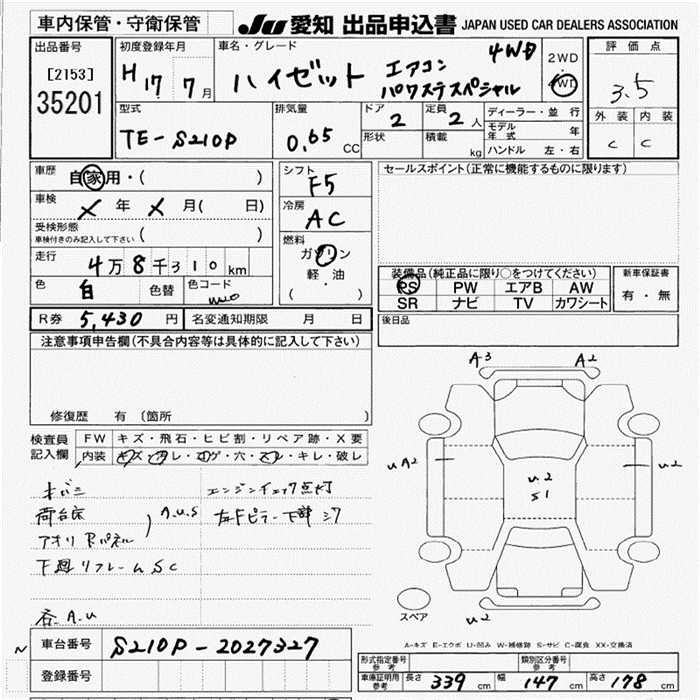 車内保管・守衛保管
JU 愛知 出品申込書 JAPAN USED CAR DEALERS ASSOCIATION
出品番号
[2153]
35201
初度登録年月
H17 7月
車名・グレード
ハイゼット エアコン パワステスペシャル 4WD
2WD
4WD
評価点
3.5
外装 内装
C C
型式
TE-S210P
排気量
0.65 CC
ドア
2
形状
定員
2人
積載
kg
ディーラー・並行
モデル年式 年
ハンドル 左・右
車歴
自家用・( )
車検
X年X月( 日)
受検形態
車検付きのみ記入して下さい ( )
走行
4万8千310km
色
白
色替
色コード
W20
シフト
F5
冷房
AC
燃料
ガソリン
軽・油
( ・ )
セールスポイント(正常に機能するものに限ります)
装備品(純正品に限り○をつけてください)
PS PW エアB AW
SR ナビ TV カワシート
新車保証書
有・無
R券 5,430円
名変通知期限 月 日
後日品
注意事項申告欄(不具合内容等は具体的に記入して下さい)
修復歴 有 (箇所 )
検査員記入欄
FW キズ・飛石・ヒビ割・リペア跡・X要
内装 キズ・ヨゴレ・コゲ・穴・スレ・キレ・破レ
エンジンチェック点灯
荷台床
A.U.S
左Fピラー下部シワ
アオリ Rパネル
下廻リフレームSC
A.U
A3
A2
UA2
U2
U2
S1
U2
スペア
A-キズ E-エクボ U-凹み W-補修跡 S-サビ C-腐食 XX-交換済
N
車台番号
S210P-2027327
登録番号
形式指定番号 参考
類別区分番号 参考
車庫証明用参考
長さ 339 cm
幅 147 cm
高さ 178 cm